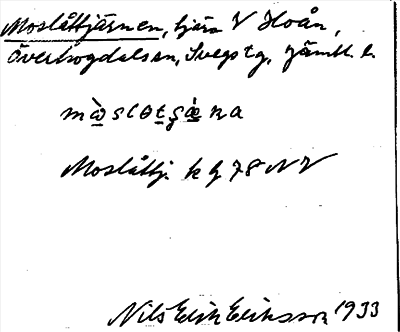 Moslåttjärnen, tjärn V Hoån,
Överhogdalssn, Svegs tg, Jämtl. l.
Moslåttj. k bl 78 NV
Nils Erik Eriksson 1933